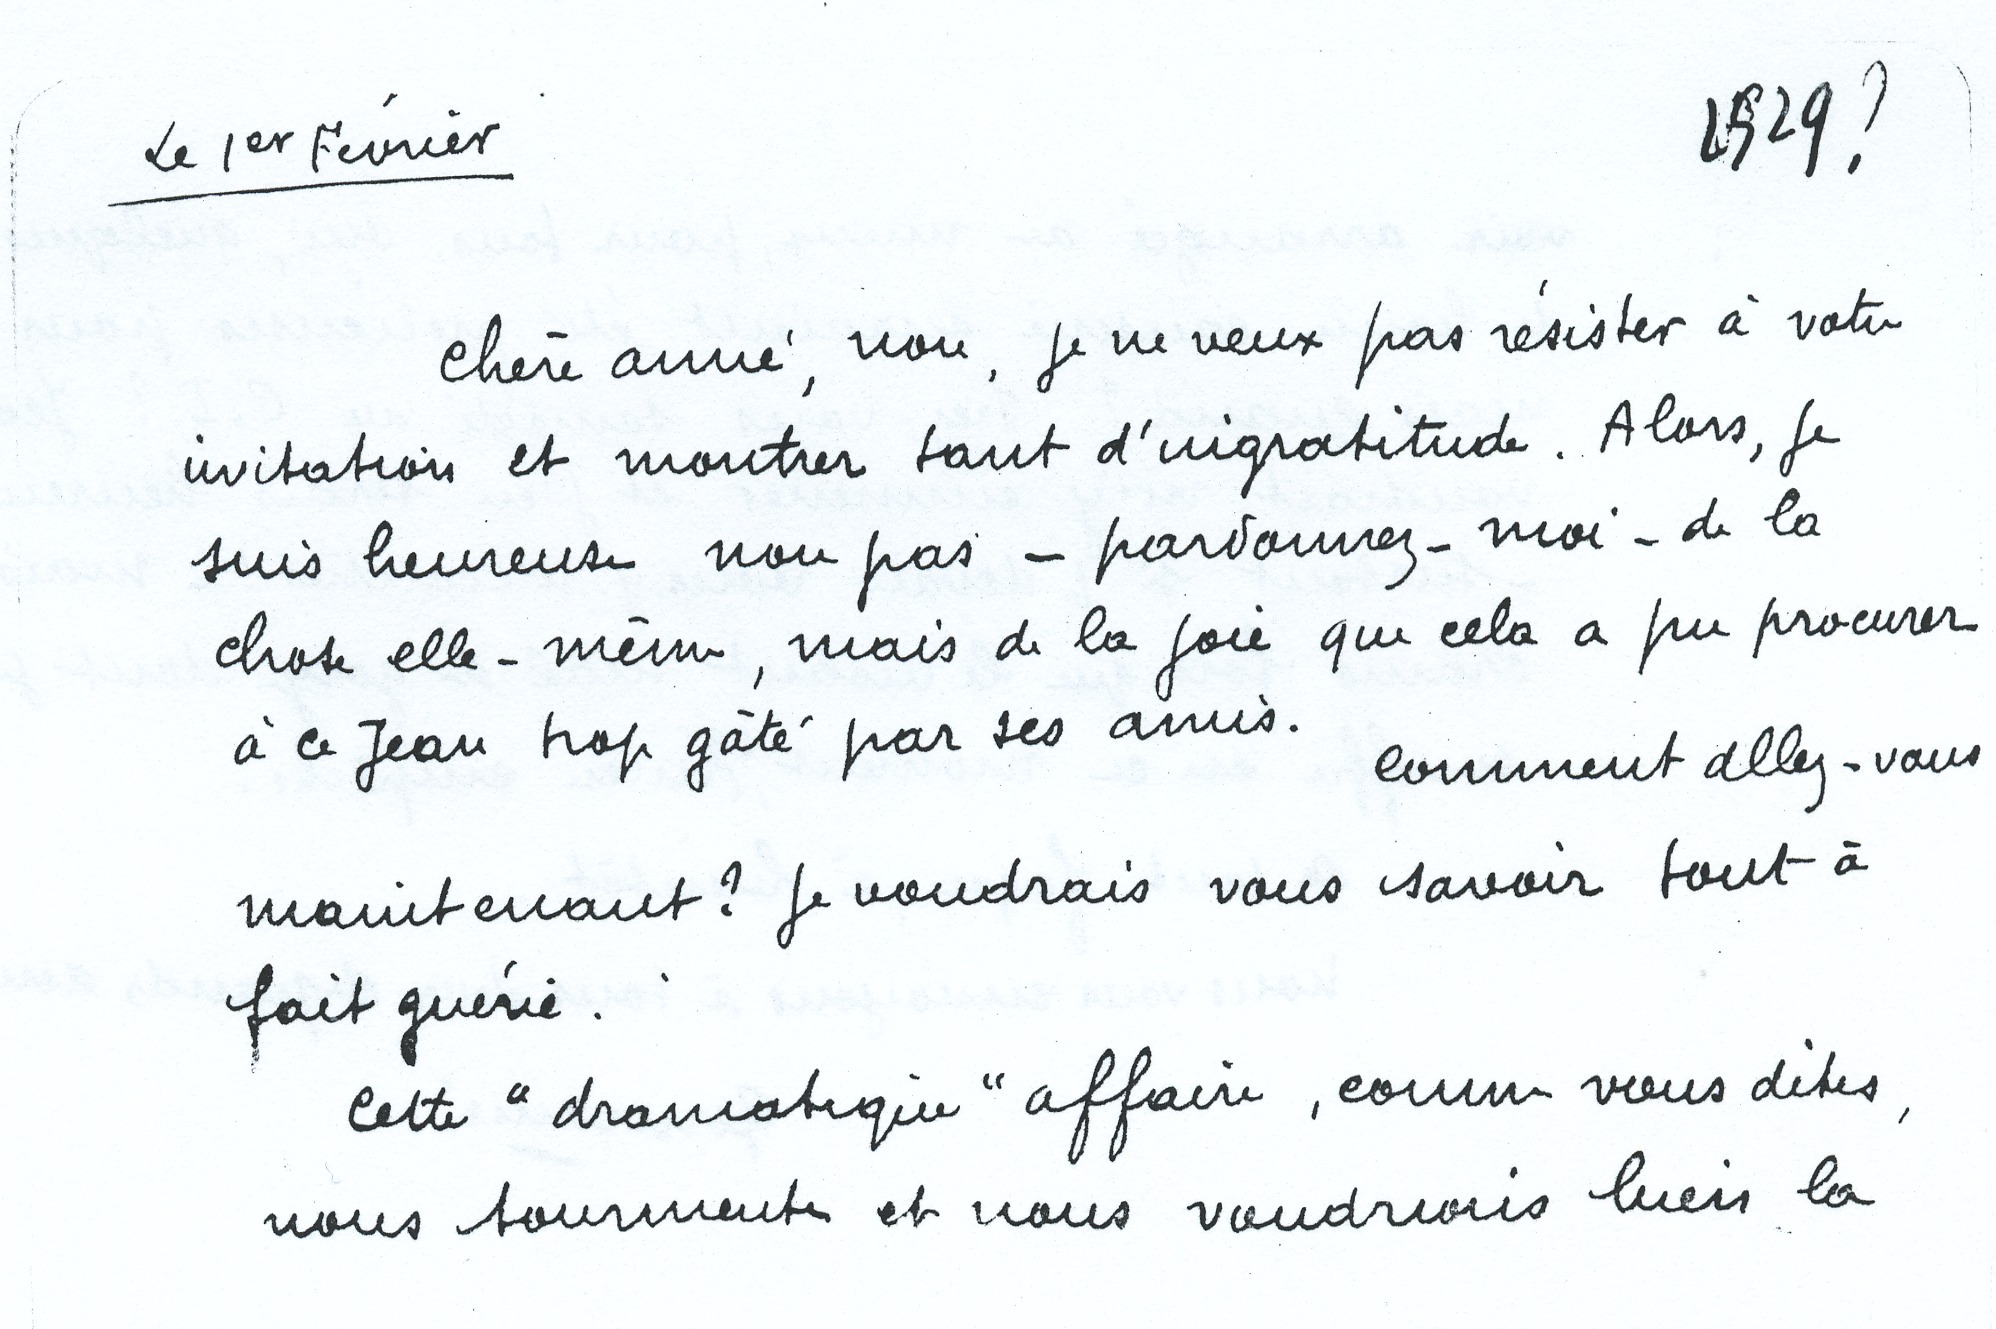 Le 1er Février
1929?
Chère amie, non, je ne veux pas résister à votre
invitation et montrer tant d'ingratitude. Alors, je
suis heureuse non pas – pardonnez-moi – de la
chose elle-même, mais de la joie que cela a pu procurer
à ce Jean trop gâté par ses amis.
Comment allez-vous
maintenant? Je voudrais vous savoir tout à
fait guérie.
Cette "dramatique" affaire, comme vous dites,
nous tourmente et nous voudrions bien la